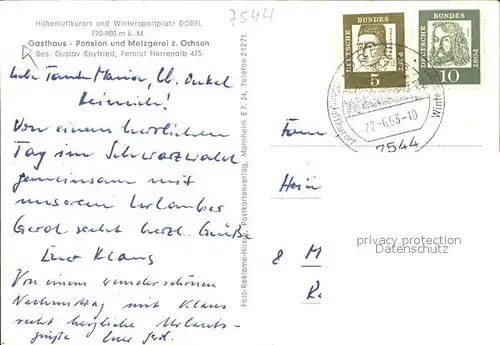 7544
Höhenluftkurort und Wintersportplatz DOBEL
720-900 m ü. M.
Gasthaus - Pension und Metzgerei z. Ochsen
Bes. Gustav Seyfried, Fernruf Herrenalb 475
Liebe Tante Maria, lb. Onkel
Heinrich!
Von einem herrlichen
Tag im Schwarzwald
gemeinsam mit
unserem Urlauber
Gerol recht herzl. Grüße
Euer Klaus
Von einem wunderschönen
Nachmittag mit Klaus
recht herzliche Urlaubs-
grüße Euer Gerol.
Foto-Reklame-Husen, Postkartenverlag, Mannheim E 7, 24, Telefon 21271
DEUTSCHE BUNDES POST
5
DEUTSCHE BUNDES POST
10
Luftkurort
Winte
22.-6.63-10
7544
Fam
Hein
8 M
privacy protection
Datenschutz